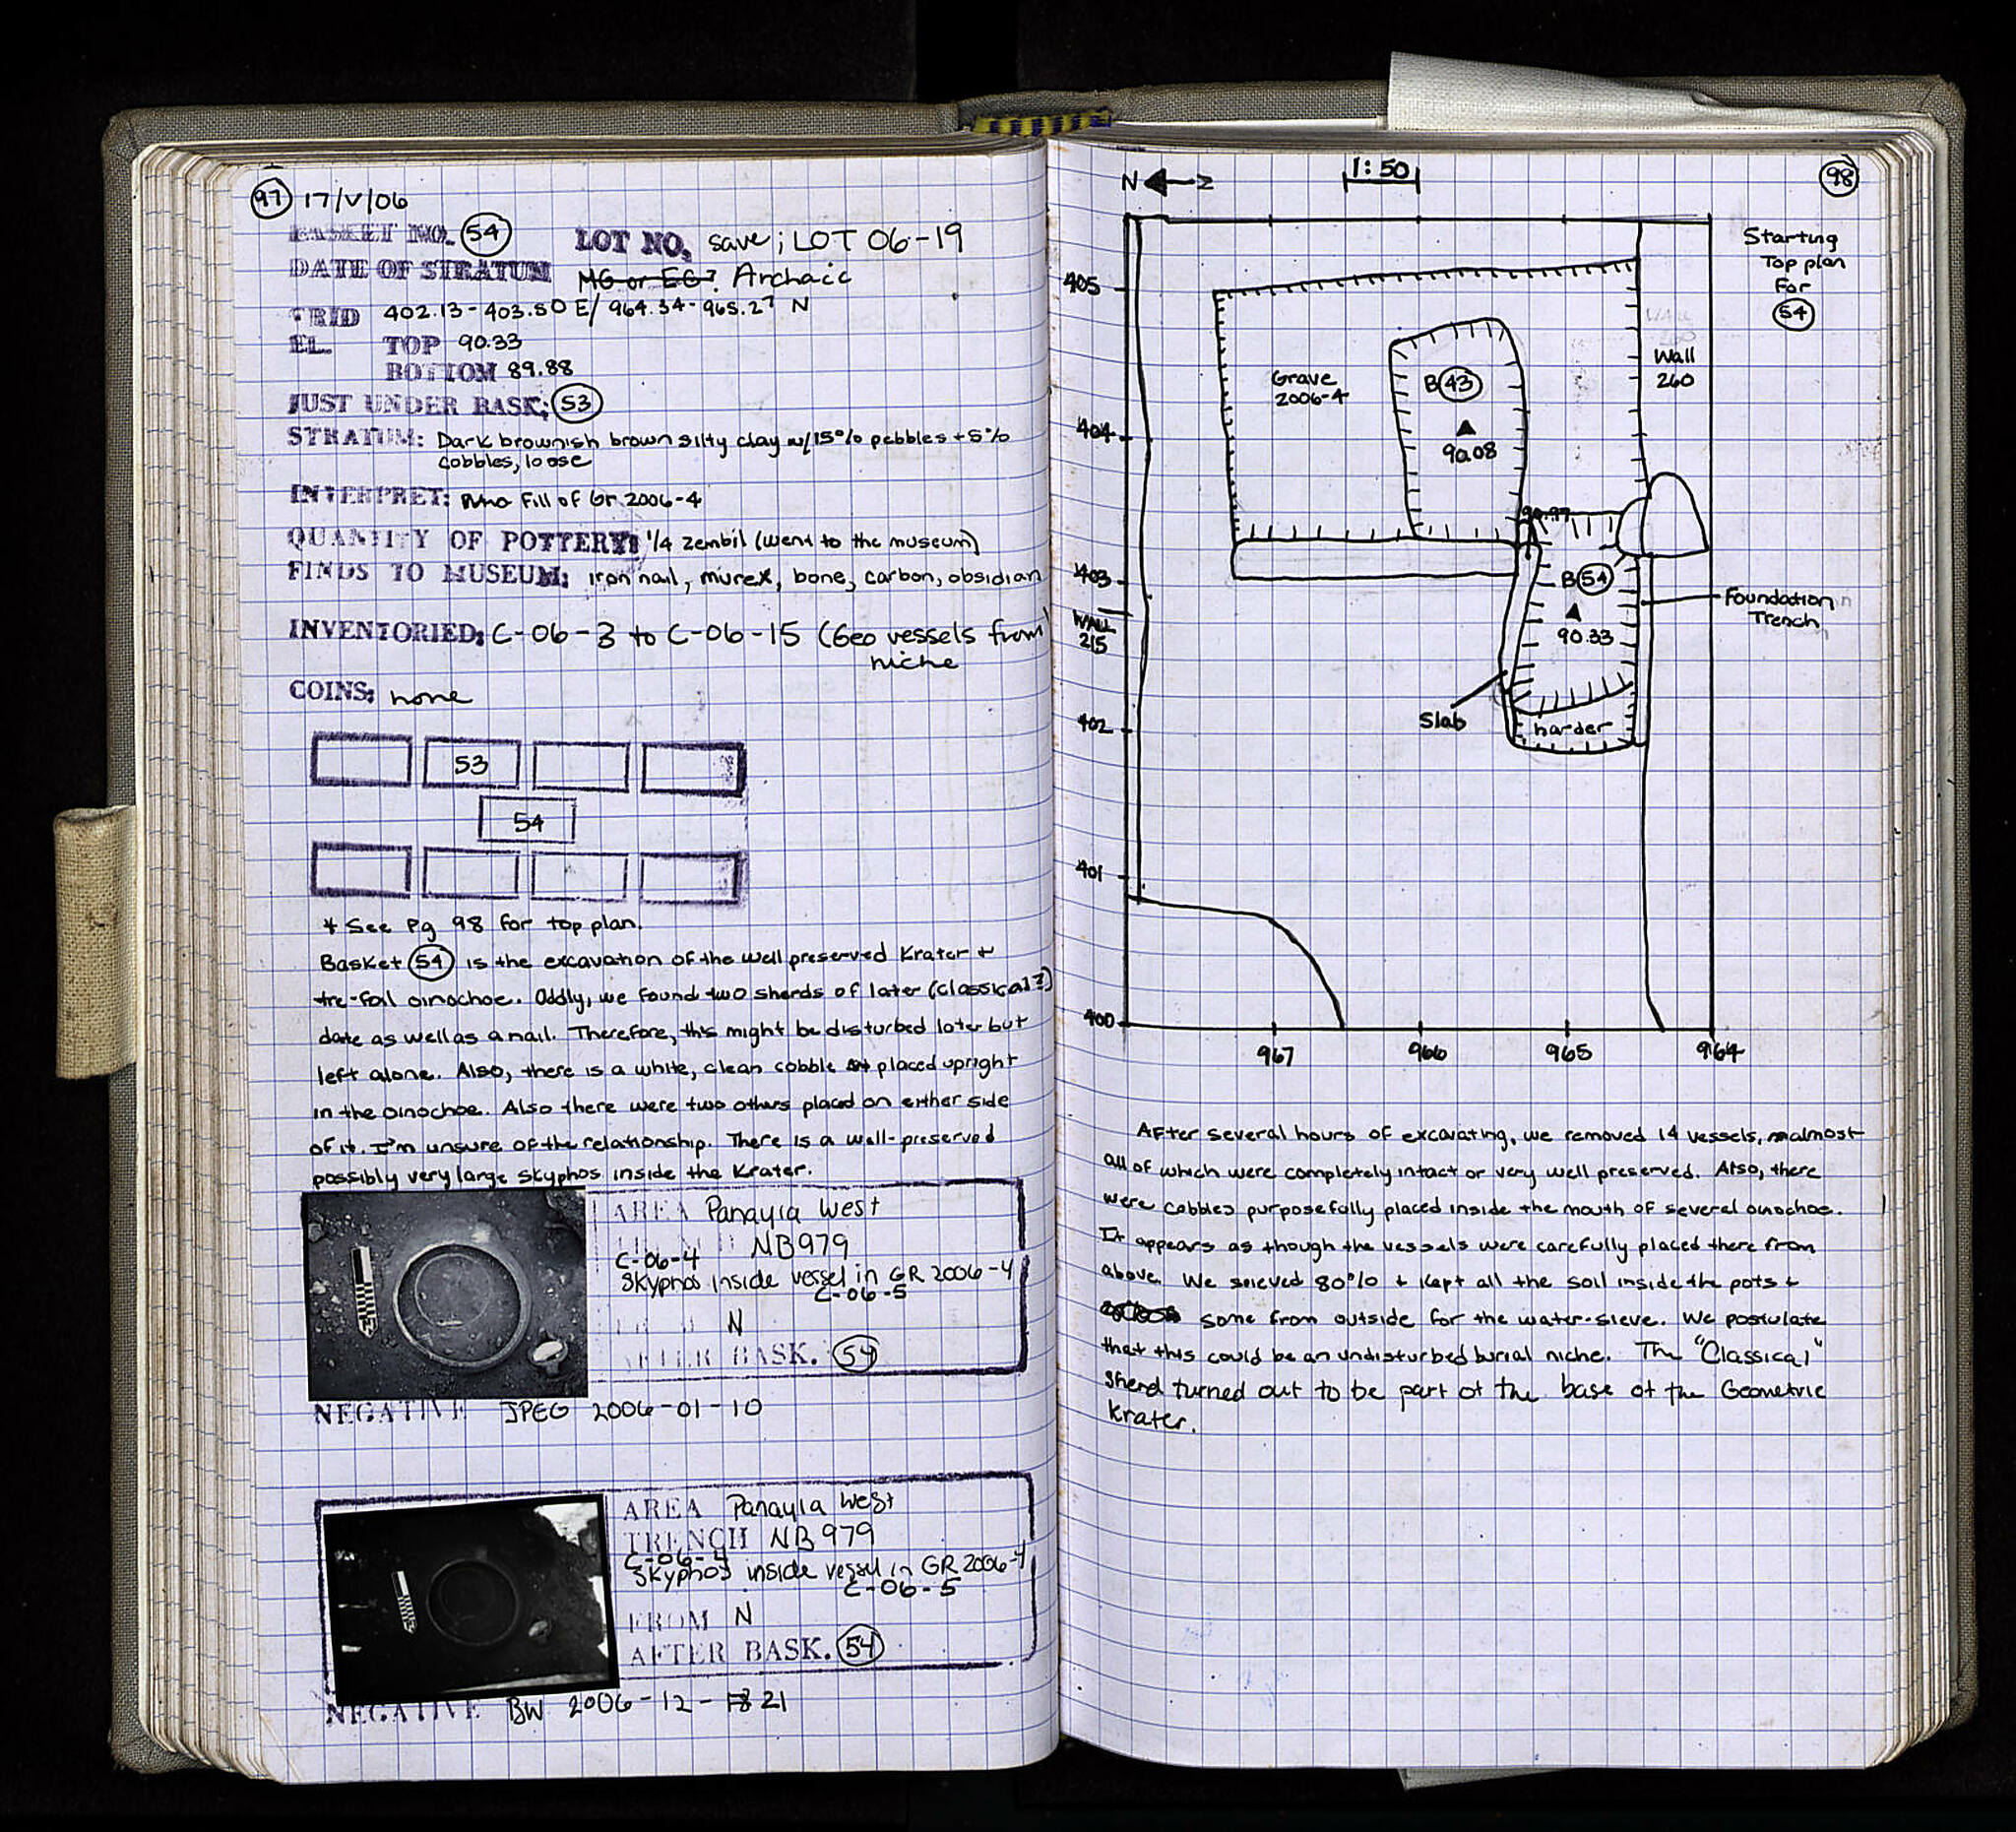 97 17/V/06
BASKET NO. 54 LOT NO. save; LOT 06-19
DATE OF STRATUM MG or EG? Archaic
GRID 402.13-403.50 E/ 964.34-965.27 N
EL. TOP 90.33
BOTTOM 89.88
JUST UNDER BASK: 53
STRATUM: Dark brownish brown silty clay w/15% pebbles + 5%
cobbles, loose
INTERPRET: Fill of Gr 2006-4
QUANTITY OF POTTERY: 1/4 zembil (went to the museum)
FINDS TO MUSEUM: iron nail, murex, bone, carbon, obsidian
INVENTORIED: C-06-3 to C-06-15 (Geo vessels from
niche
COINS: none
53
54
* See Pg 98 for top plan.
Basket 54 is the excavation of the well preserved Krater +
tre-foil oinochoe. Oddly, we found two sherds of later (classical?)
date as well as a nail. Therefore, this might be disturbed later but
left alone. Also, there is a white, clean cobble placed upright
in the oinochoe. Also there were two others placed on either side
of it. I'm unsure of the relationship. There is a well-preserved
possibly very large skyphos inside the Krater.
AREA Panayia West
NB979
C-06-4
Skyphos inside vessel in GR 2006-4
C-06-5
N
AFTER BASK. 54
NEGATIVE JPEG 2006-01-10
AREA Panayia West
TRENCH NB979
C-06-4
Skyphos inside vessel in GR 2006-4
C-06-5
FROM N
AFTER BASK. 54
NEGATIVE BW 2006-12-18 21
N 1:50 98
Starting
Top plan
for
54
405
404
403
WALL
215
402
401
400
967 966 965 964
Grave
2006-4
B 43
90.08
Wall
260
90.97
B 54
90.33
Foundation
Trench
Slab
harder
After several hours of excavating, we removed 14 vessels, almost
all of which were completely intact or very well preserved. Also, there
were cobbles purposefully placed inside the mouth of several oinochoe.
It appears as though the vessels were carefully placed there from
above. We sieved 80% + kept all the soil inside the pots +
some from outside for the water-sieve. We postulate
that this could be an undisturbed burial niche. The "Classical"
sherd turned out to be part of the base of the Geometric
Krater.